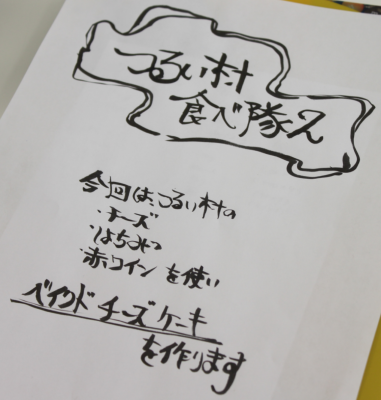 つるい村
食べ隊2
今回は、つるい村の
・チーズ
・はちみつ
・赤ワイン を使い
ベイクド チーズケーキ
を作ります